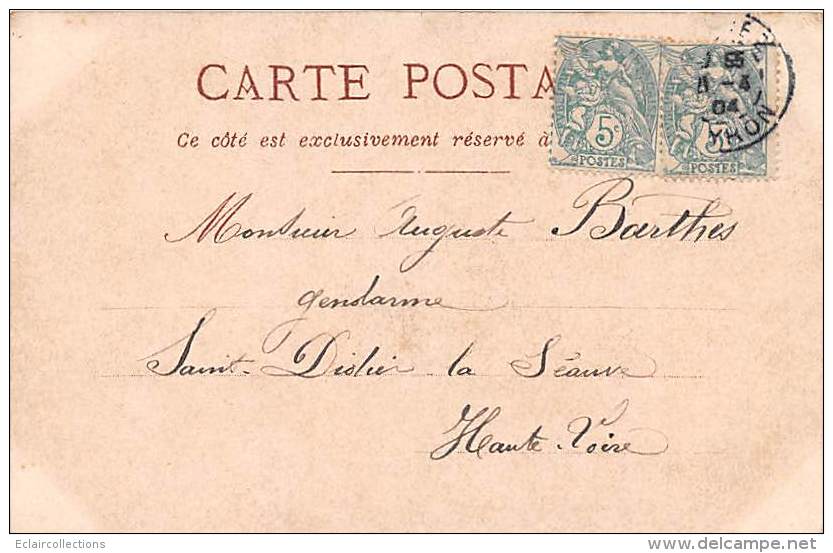 CARTE POSTA
Ce côté est exclusivement réservé à
5c 5c
POSTES POSTES
11 -4
04
Monsieur Auguste Barthes
gendarme
Saint-Didier la Séauve
Haute-Loire
Eclaircollections
delcampe.net